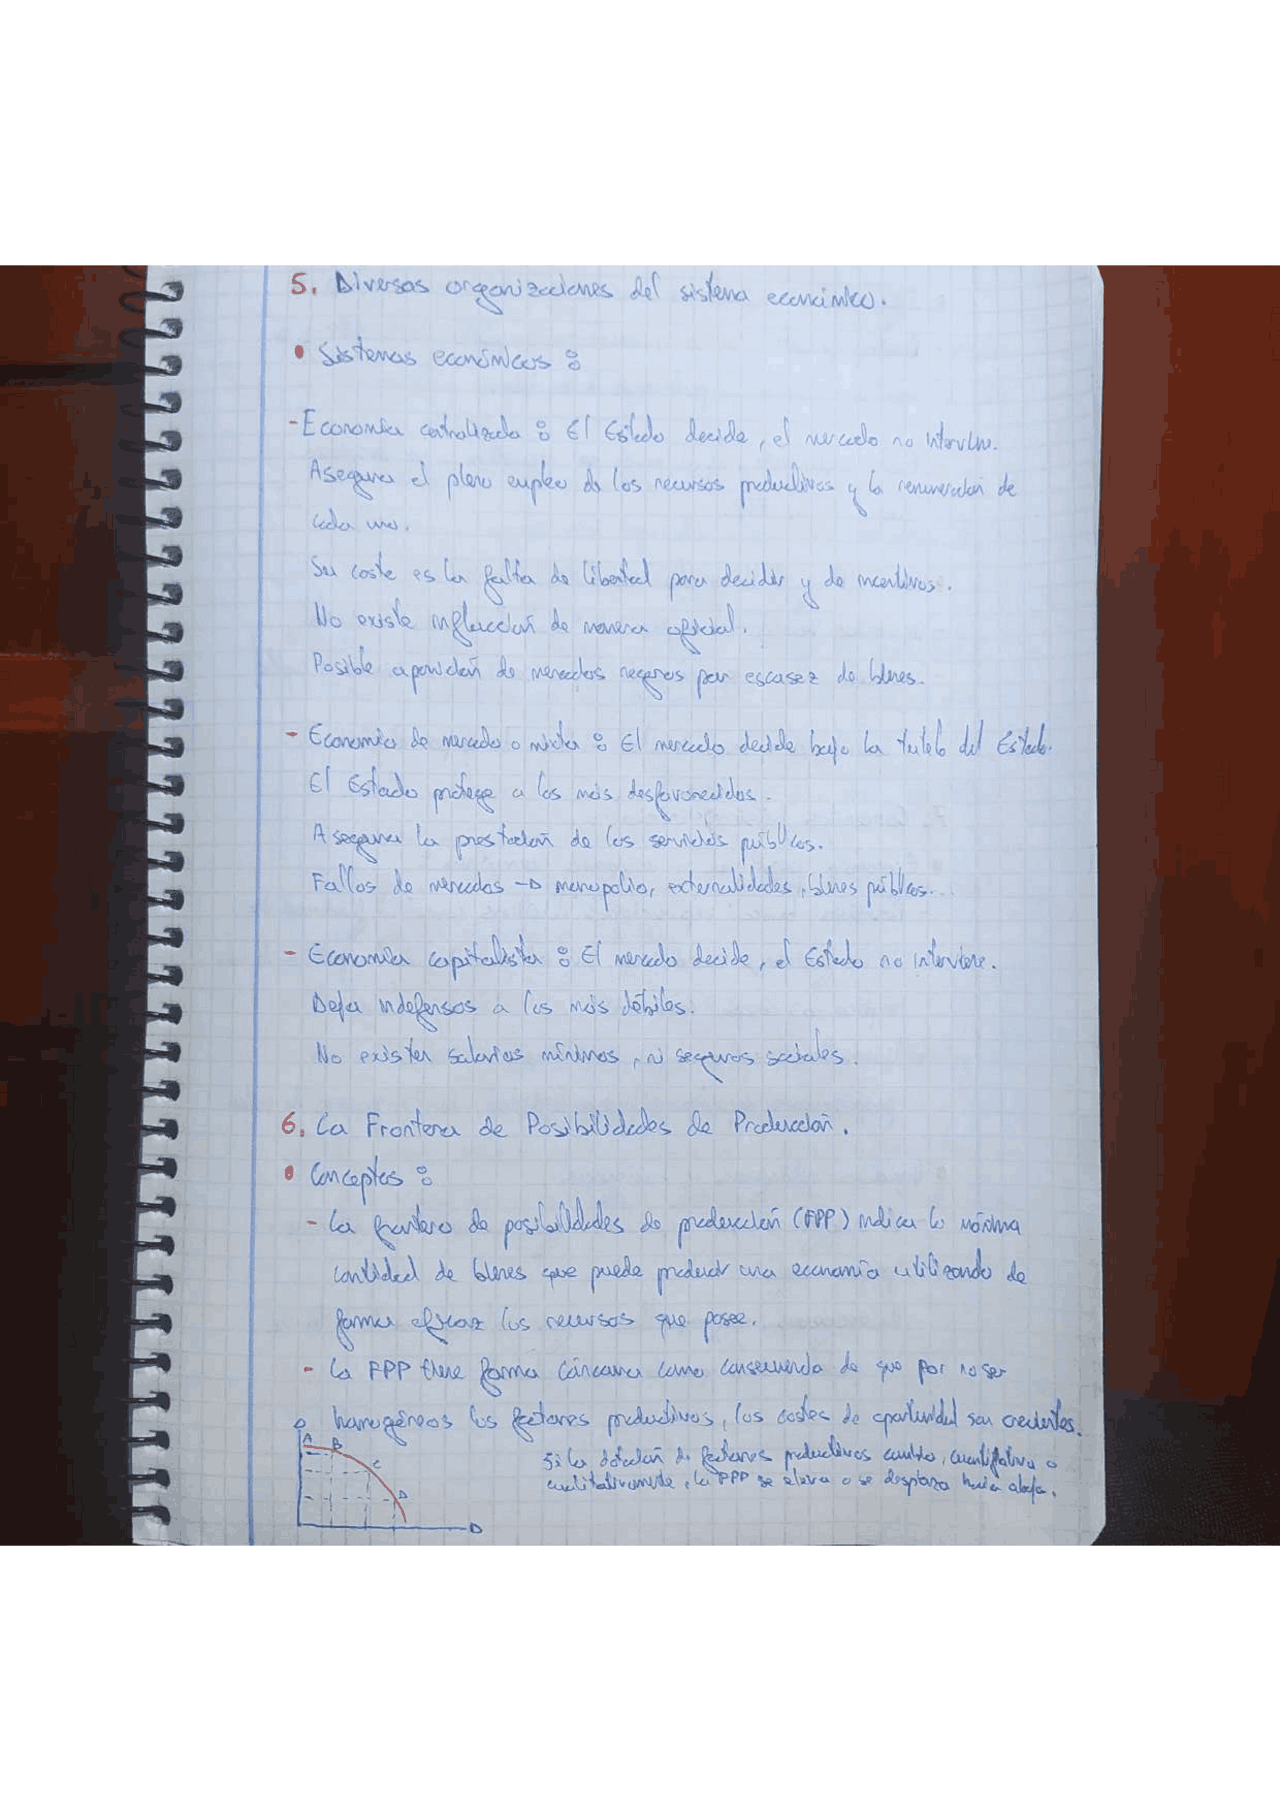 5. Diversas organizaciones del sistema económico.
• Sistemas económicos :
- Economía centralizada : El Estado decide, el mercado no interviene.
Asegura el pleno empleo de los recursos productivos y la remuneración de
cada uno.
Su coste es la falta de libertad para decidir y de incentivos.
No existe inflacción de manera oficial.
Posible aparición de mercados negros por escasez de bienes.
- Economía de mercado o mixta : El mercado decide bajo la tutela del Estado.
El Estado protege a los más desfavorecidos.
Asegura la prestación de los servicios públicos.
Fallos de mercados → monopolio, externalidades, bienes públicos...
- Economía capitalista : El mercado decide, el Estado no interviene.
Deja indefensos a los más débiles.
No existen salarios mínimos, ni seguros sociales.
6. La Frontera de Posibilidades de Producción.
• Conceptos :
- La frontera de posibilidades de producción (FPP) indica la máxima
cantidad de bienes que puede producir una economía utilizando de
forma eficaz los recursos que posee.
- La FPP tiene forma cóncava como consecuencia de que por no ser
homogéneos los factores productivos, los costes de oportunidad son crecientes.
A B
C
D
Si la dotación de factores productivos cambia, cuantitativa o
cualitativamente, la FPP se eleva o se desplaza hacia abajo.